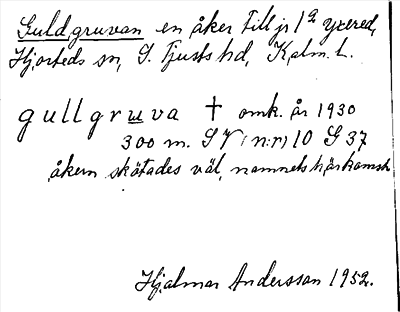 Guldgruvan en åker till jr 1ª Yxered,
Hjorteds sn, S. Tjusts hd, Kalm. L.
gullgruva † omk. år 1930
300 m. SV (n:r) 10 G 37
åkern skötades väl, namnets härkomst
Hjalmar Andersson 1952.